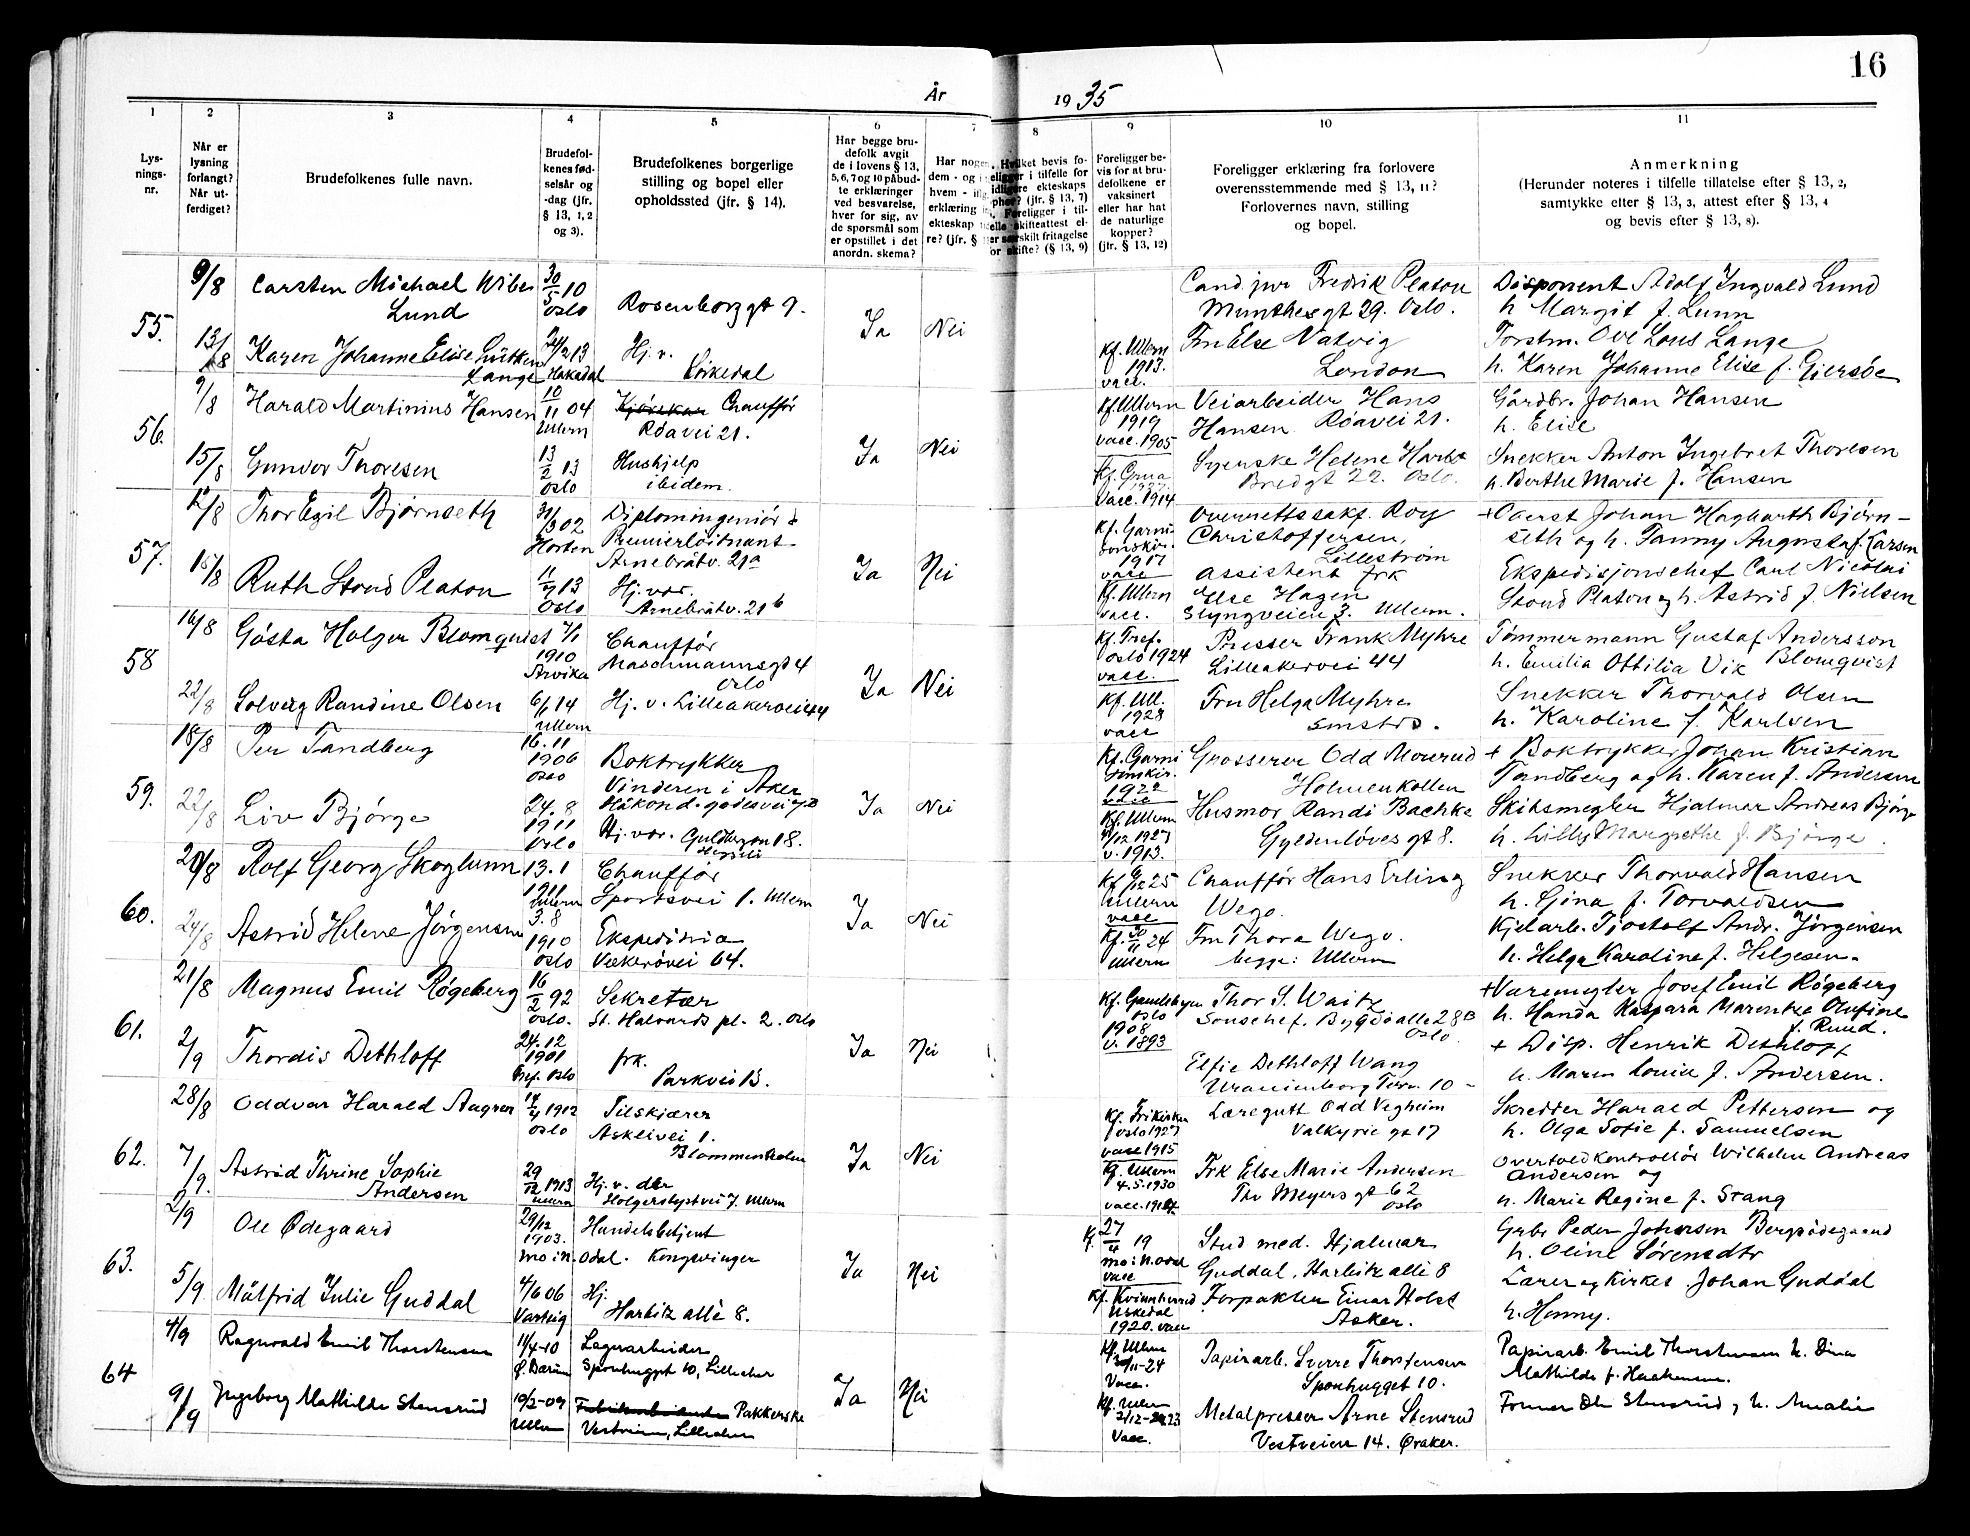 16
År 1935
1 2 3 4 5 6 7 8 9 10 11
Lys-
nings-
nr.
Når er
lysning
forlangt?
Når ut-
ferdiget?
Brudefolkenes fulle navn.
Brudefol-
kenes fød-
selsår og
-dag (jfr.
§ 13, 1, 2
og 3).
Brudefolkenes borgerlige
stilling og bopel eller
opholdssted (jfr. § 14).
Har begge bru-
defolk avgit
de i lovens § 13,
5, 6, 7 og 10 påbud-
te erklæringer
ved besvarelse,
hver for sig, av
de spørsmål som
er opstillet i det
anordn. skema?
Foreligger be-
vis for at bru-
defolkene er
vaksinert
eller har hat
de naturlige
kopper?
(jfr. § 13, 12)
Foreligger erklæring fra forlovere
overensstemmende med § 13, 11?
Forlovernes navn, stilling
og bopel.
Anmerkning
(Herunder noteres i tilfelle tillatelse efter § 13, 2,
samtykke efter § 13, 3, attest efter § 13, 4
og bevis efter § 13, 8).
55.
9/8 Carsten Michael Wibe
Lund
30/5 10
Oslo
Rosenborggt 9.
Ja Nei
Cand. jur Fredrik Platou
Munthesgt 29. Oslo.
Disponent Adolf Ingvald Lund
h Margit f. Lunn
13/8 Karen Johanne Elise Lütken
Lange
24/2 13
Hakadal
Hj. v.
Kf. Ullern
1913.
vacc.
Fru Else Natvig
London
Forstm. Ove Lous Lange
h. Karen Johanne Elise f. Giersøe
56.
9/8 Harald Martinius Hansen
10/11 04
Ullern
Chauffør
Röavei 21.
Ja Nei
Kf. Ullern
1919
vacc. 1905
Veiarbeider Hans
Hansen Röavei 21.
Gårdbr. Johan Hansen
h. Elise
15/8 Gunvor Thoresen
13/2 13
Oslo
Hushjelp
ibidem.
vacc. 1914
Syerske Helene
Bredgt 22. Oslo.
Snekker Anton Ingebret Thoresen
h. Berthe Marie f. Hansen
57.
12/8 Thor Egil Bjørnseth
31/3 02
Horten
Diplomingeniør &
Premierløitnant
Arnebråtv. 21a
Ja Nei
Kf. Garni-
sonskir.
1917
vacc
Overrettssakf. Roy
Christoffersen,
Lillestrøm
+ Oberst Johan Hagbarth Bjørn-
seth og h. Fanny Augusta f. Larsen
15/8 Ruth Stoud Platou
11/7 13
Oslo
Hj. vær.
Arnebråtv. 21b
Kf. Ullern
vacc.
Assistent frk
Else Hagen
Slyngveien 3. Ullern.
Ekspedisjonschef Carl Nicolai
Stoud Platou og h. Astrid f. Nielsen
58
16/8 Gösta Holger Blomqvist
7/1
1910
Arvika
Chauffør
Maschmannsgt 4
Oslo
Ja Nei
Kf. Tref.
Oslo 1924
vacc.
Presser Frank Myhre
Lilleakervei 44
Tømmermann Gustaf Andersson
Blomqvist
h. Emilia Ottilia Vik
22/8 Solveig Randine Olsen
6/1 14
Ullern
Hj. v. Lilleakervei 44
Kf. Ull.
1928
vacc
Fru Helga Myhre
smstds.
Snekker Thorvald Olsen
h. Karoline f. Karlsen
59.
18/8 Per Tandberg
16. 11
1906
Oslo
Boktrykker
Vinderen i Aker
Håkon d. godesvei
Ja Nei
Kf. Garni
sonskir.
1922
Grosserer Odd Mourud
Holmenkollen
+ Boktrykker Johan Kristian
Tandberg og h. Karen f. Andersen
22/8 Liv Bjørge
24. 8
1911
Oslo
Hj. vær. 18.
Kf. Ullern
1927
v. 1913.
Husmor Randi Bachke
Gyldenløvesgt 8.
Skibsmegler Hjalmar Andreas Bjørge
h. Lilly Margrethe f. Bjørge
60.
20/8 Rolf Georg Skoglunn
13. 1
1911
Ullern
Chauffør
Sportsvei 1. Ullern
Ja Nei
Kf 6/12 25
Ullern
vacc
Chauffør Hans Erling
Wego.
Snekker Thorvald Hansen
h. Gina f. Torvaldsen
24/8 Astrid Helene Jørgensen
3. 8
1910
Oslo
Ekspeditrice
Vækerövei 64.
Kf. 30/11 24
Ullern
Fru Thora Wego.
begge: Ullern
Kjelarb. Tjostolf Andr. Jørgensen
h. Helga Karoline f. Helgesen.
61.
21/8 Magnus Emil Røgeberg
16/2 92
Oslo.
Sekretær
St. Halvards pl. 2. Oslo
Ja Nei
Kf. Gamlebyen
Oslo
1908
v. 1893
Thor S. Waitz
Bygdö alle 28B
Oslo
+ Varemegler Josef Emil Røgeberg
h. Handa Kaspara Marentze Olufine
f. Ruud.
2/9 Thordis Dethloff
24. 12
1901
Tref. Oslo
frk.
Parkvei
Elfie Dethloff Wang
Uranienborg Terr. 10
+ Disp. Henrik Dethloff
h. Maren Louise f. Andersen.
62.
28/8 Oddvar Harald Aagren
1912
Oslo
Tilskjærer
Asklivei 1.
Blommenholm
Ja Nei
Kf. Frikirken
Oslo 1927
vacc 1915
Læregutt Odd Vegheim
Valkyriegt 17
Skredder Harald Pettersen og
h. Olga Sofie f. Samuelsen
7/9 Astrid Thrine Sophie
Andersen
29/12 1913
Ullern
Hj. v. dtr
Holgerslystvei 7. Ullern
Kf. Ullern
4.5.1930
Frk Else Marie Andersen
Thv Meyersgt 62
Oslo
Overtollkontrollör Wilhelm Andreas
Andersen og
h. Marie Regine f. Stang
63.
2/9 Ole Ødegaard
29/12
1903.
Mo i N. Odal.
Handelsbetjent
Kongsvinger
Ja Nei
Kf. 27/4 19
Mo i N. Odal
vacc
Stud med. Hjalmar
Guddal, Harbitzalle 8
Grbr Peder Johansen Bergsødegaard
h. Oline Sørensdtr
5/9 Målfrid Julie Guddal
4/6 06
Varteig
Hj.
Harbitz allé 8.
Kf. Kvinnherred
1920. vacc
Forpakter Einar Holst
Asker.
Lærer og Kirkes. Johan Guddal
h. Henny.
64
4/9 Ragnvald Emil Thorstensen
11/4-10
Ø. Bærum
Lagerarbeider
Sponhuggt 10, Lilleaker
Ja Nei
Kf. Ullern
30/11-24
Vacc.
Papirarb. Sverre Thorstensen
Sponhugget 10.
Papirarb. Emil Thorstensen h. Dina
Mathilde f. Haakensen.
9/9 Ingeborg Mathilde Stensrud
19/2-09
Ullern
Fabrikarbeiderske Pakkerske
Vestveien, Lilleaker
Kf. Ullern
2/12-23
Vacc.
Metalpresser Arne Stensrud
Vestveien 14. Øraker.
Former Ole Stensrud, h. Amalie